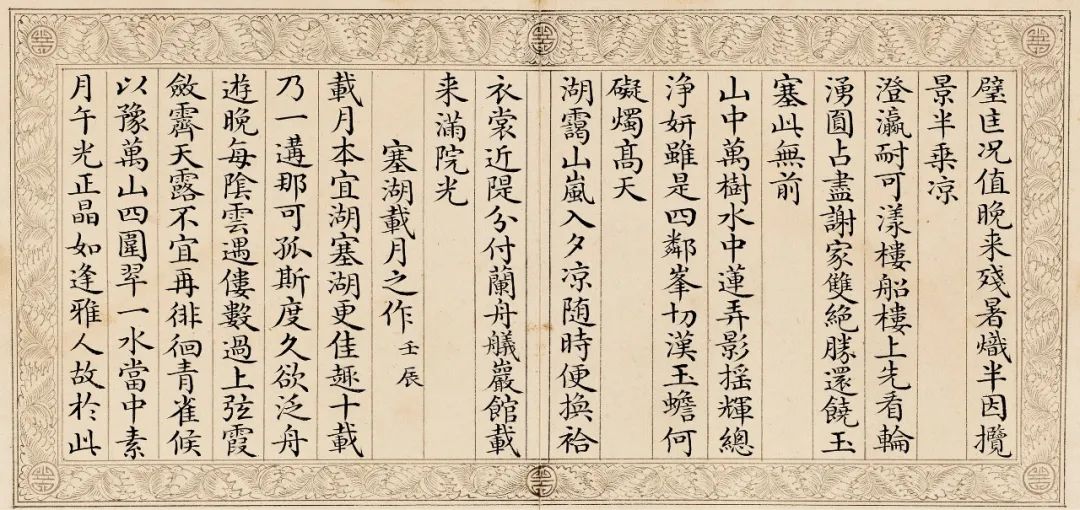 璧匡况值晚来殘暑熾半因攬
景半乗凉
澄瀛耐可漾樓船樓上先看輪
湧圓占盡謝家雙絕勝還饒玉
塞此無前
山中萬樹水中蓮弄影摇輝總
浄妍雖是四鄰峯切漢玉蟾何
礙燭髙天
湖靄山嵐入夕凉随時便換袷
衣裳近隄分付蘭舟艤巖館載
来滿院光
塞湖載月之作 壬辰
載月本宜湖塞湖更佳趣十載
乃一遘那可孤斯度久欲泛舟
遊晚每陰雲遇僂數過上弦霞
斂霽天露不宜再徘徊青雀候
以豫萬山四圍翠一水當中素
月午光正晶如逢雅人故於此